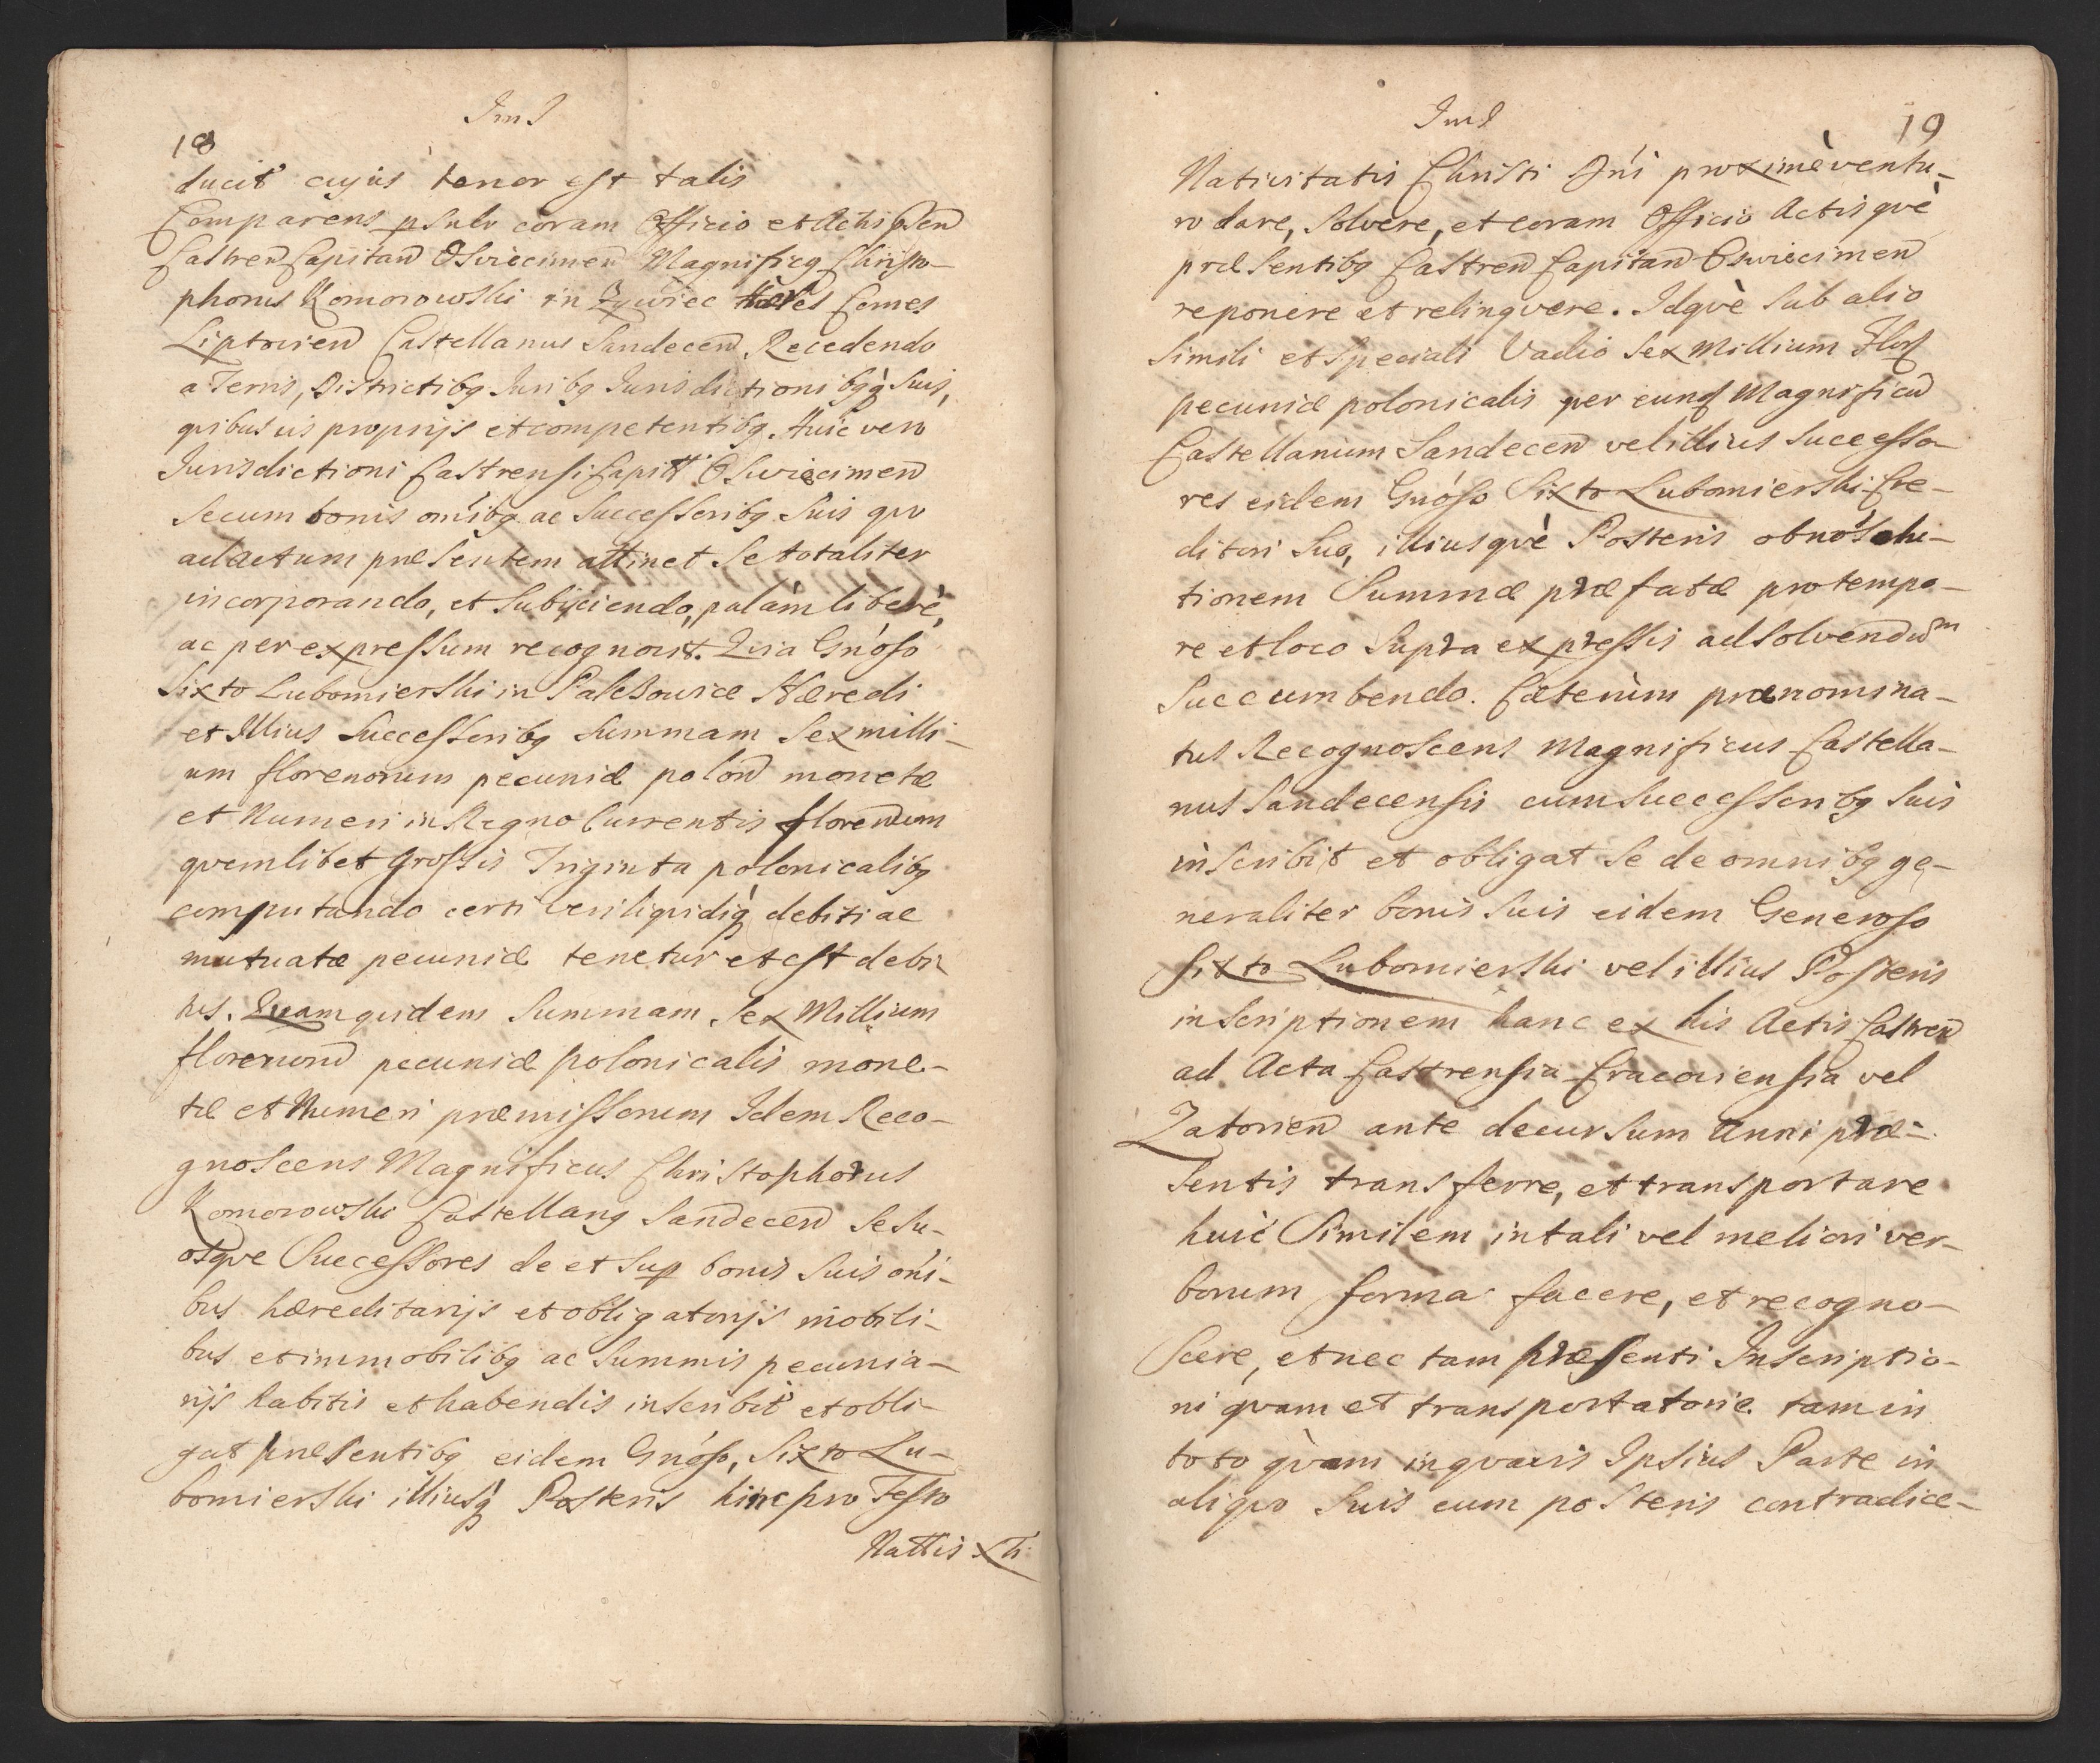 18
ducit cujus tenor est talis
Comparens psnlr coram Officio et Actis psen
Castren Capitan Osviecimen Magnificq Christo-
phorus Komorowski in Zywiec Hæres Comes
Liptovien Castellanus Sandecen Recedendo
a Terris, Districtibq Juribq Jurisdictionibqq suis,
qvibusvis proprijs et competentibq. Huic vero
Jurisdictioni Castrensi Capitt Osviecimen
secum bonis omibq ac successoribq suis qvo
ad actum præsentem attinet se totaliter
incorporando, et subijciendo, palàm liberè,
ac per expressum recognovit. Qvia Gnoso
Sixto Lubomierski in Hæredi
et Illius Successoribq summam sex milli-
um florenorum pecuniæ polon monetæ
et Numeri in Regno Currentis florenum
qvemlibet Grossis Triginta polonicalibq
computando certi veri liqvidiq debiti ac
mutuatæ pecuniæ tenetur et est debi-
tus. Qvam qvidem Summam Sex Millium
florenorum pecuniæ polonicalis mone-
tæ et Numeri præmissorum Idem Reco-
gnoscens Magnificus Christophorus
Komorowski Castellanq Sandecen se su-
osqve Successores de et sup bonis suis omi-
bus hæreditarijs et obligatorijs mobili-
bus et immobilibq ac Summis pecunia-
rijs habitis et habendis inscribit et obli-
gat præsentibq eidem Gnoso, Sixto Lu-
bomierski illiusq Posteris hinc pro Festo
Nattis Xti
19
Nativitatis Christi Dni proximè ventu-
ro dare, solvere, et coram Officio Actisqvè
præsentibq Castren Capitan Osviecimen
reponere et relinqvere. Idqvè sub alio
simili et speciali Vadio sex Millium Flor
pecuniæ polonicalis per eund Magnificu
Castellanum Sandecen vel illius successo-
res eidem Gnoso Sixto Lubomierski Cre-
ditori suo, illiusqvè Posteris ob nosolu-
tionem Summæ præfatæ pro tempo-
re et loco supra expressis ad solvendum
succumbendo. Cæterùm prænomina-
tus Recognoscens Magnificus Castella-
nus Sandecensis cum successoribq suis
inscribit et obligat se de omnibq ge-
neraliter bonis suis eidem Generoso
Sixto Lubomierski vel illius Posteris
inscriptionem hanc ex his Actis Castren
ad Acta Castrensia Cracoviensia vel
Zatorien ante decursum Anni præ-
sentis transferre, et transportare
huic similem in tali vel meliori ver-
borum forma facere, et recogno-
scere, et nec tam præsenti Inscriptio-
ni qvam et transportatoriæ tam in
toto qvàm in qvavis Ipsius Parte in
aliqvo suis cum posteris contradice-